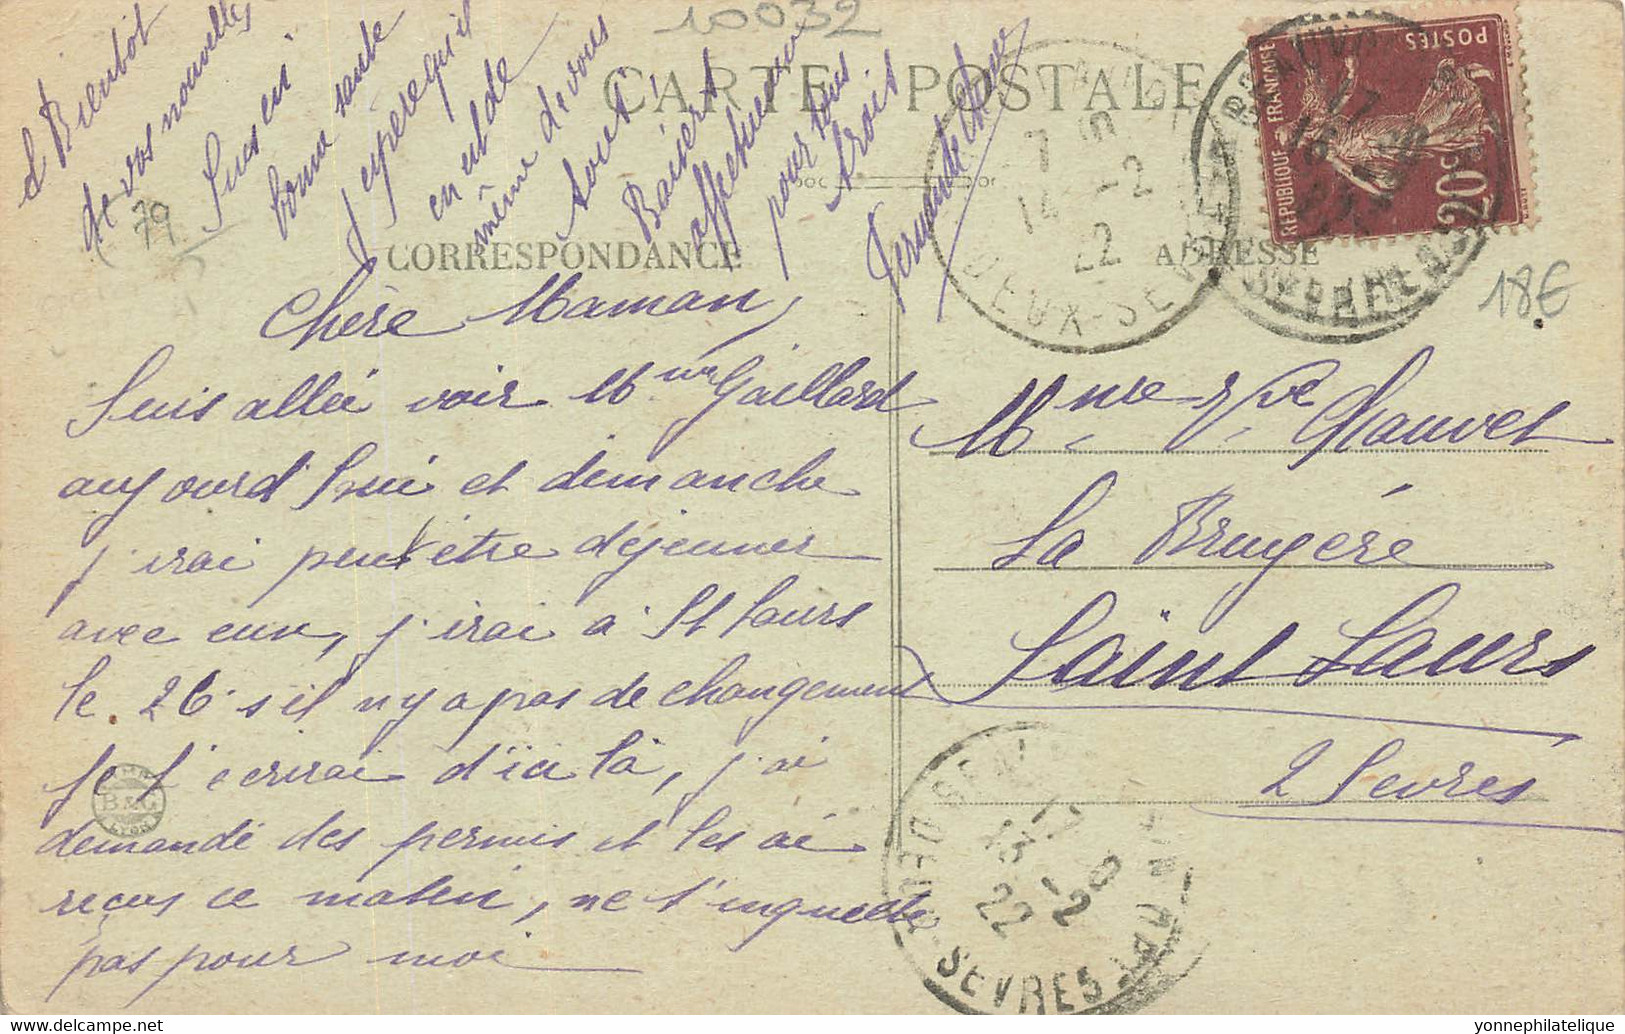 10032
CARTE POSTALE
à Bientôt
de vos nouvelles
Suis en
bonne santé
j'espère qu'il
en est de
même de vous
tout!
Baisers
affectueux
pour tous
trois
Fernande
79
CORRESPONDANCE
ADRESSE
RÉPUBLIQUE FRANÇAISE
POSTES
20c
7
14 -2
22
DEUX-SÈVRES
18€
Chère Maman,
Suis allée voir Mme Gaillard
aujourd'hui et dimanche
j'irai peut être déjeuner
avec eux, j'irai à St Laurs
le 26 s'il n'y a pas de changement
je t'écrirai d'ici là, j'ai
demandé des permis et les ai
reçus ce matin, ne t'inquiette
pas pour moi
B & G
LYON
Mme Vve Chauvet
La Bruyére
Saint Laurs
2 Sevres
13 -2
22
SEVRES
www.yonnephilatelique.com